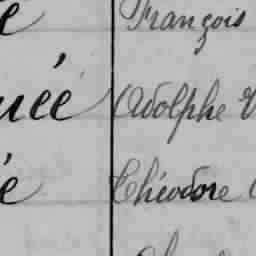 é François
uée Adolphe
é Théodore